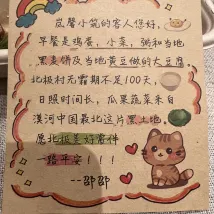 岚馨小筑的客人您好，
早餐是鸡蛋，小菜，粥和当地
黑麦饼及当地黄豆做的大豆腐
北极村无霜期不足100天，
日照时间长，瓜果蔬菜来自
漠河中国最北这片黑土地
愿北极美好寄件
一路平安！！！
--邵邵